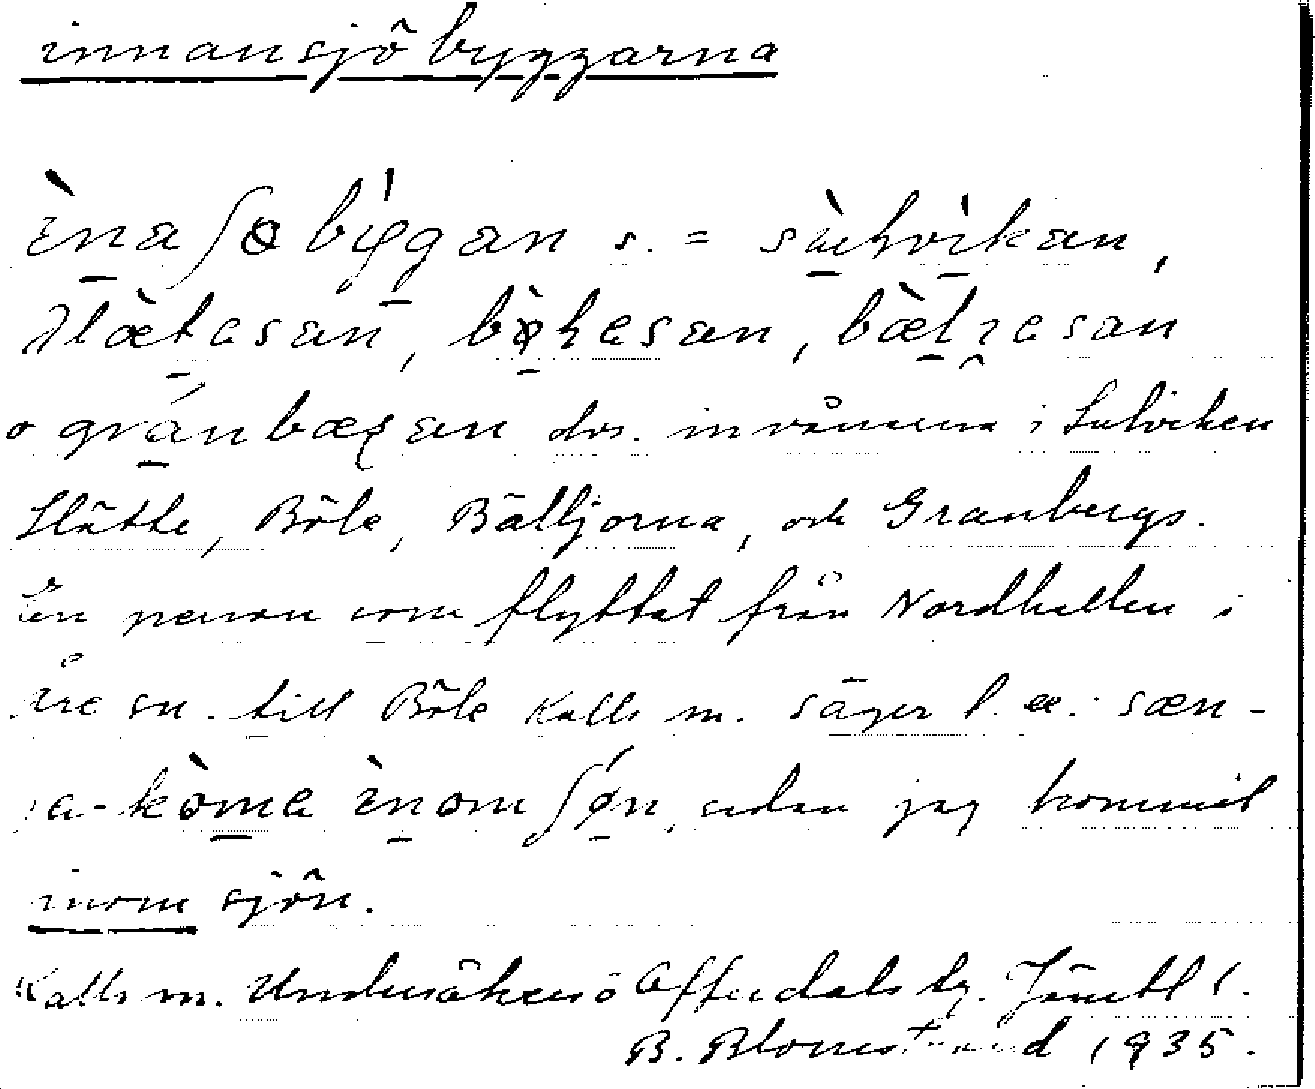 innansjöbyggarna
ènaʃøbýgan s. = sùlvìkan,
slæ̀tesan, bø̀lesan, bæ̀lresan
o gránbæɽan dvs. invånarna i Sulviken
Slätte, Böle, Bälljorna, och Granbergs.
En person som flyttat från Nordhallen i
Åre sn. till Böle Kalls sn. säger t. ex. sæn-
ja-kòme ènom ʃǿn, sedan jag kommit
inom sjön.
Kalls sn. Undersåkers o Offerdals tg. Jämtl l.
B. Blomstrand 1935.